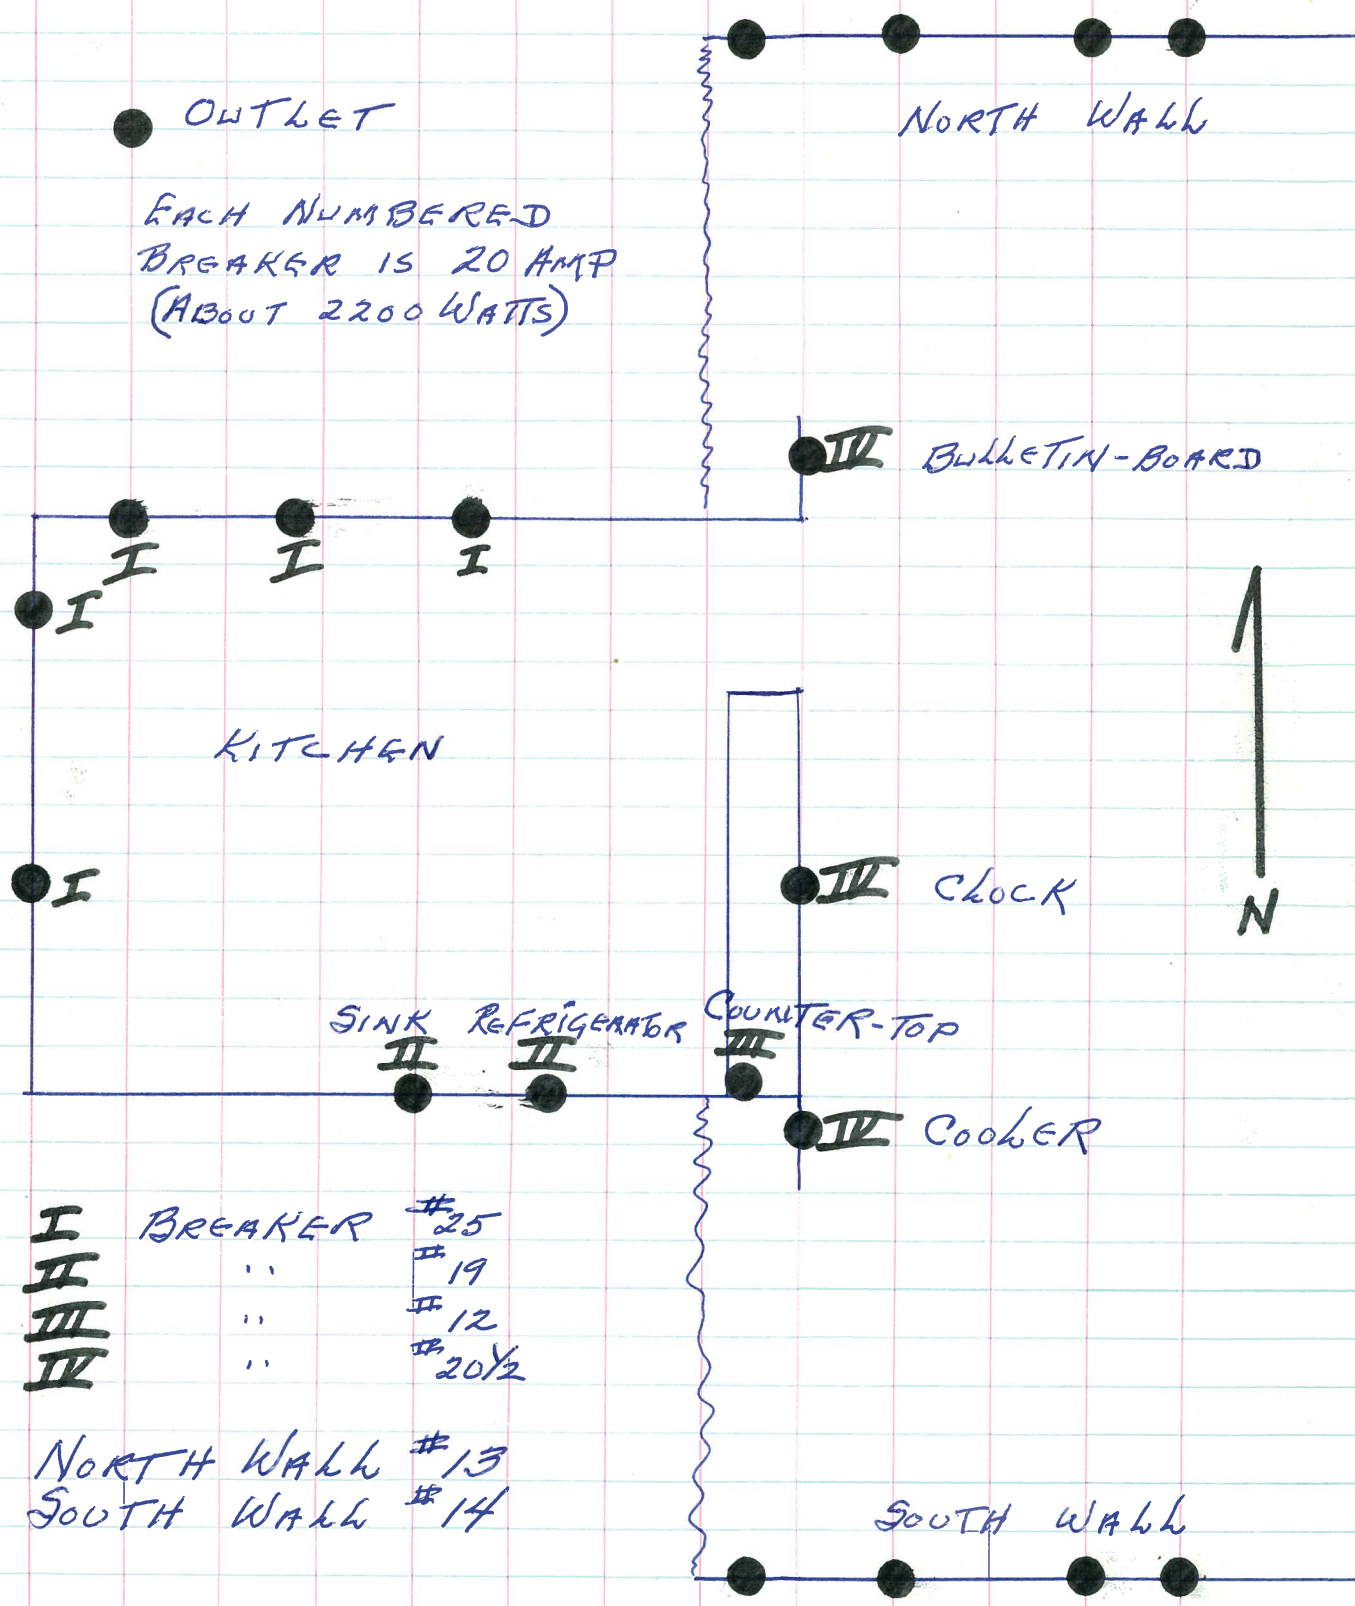 OUTLET
NORTH WALL
EACH NUMBERED
BREAKER IS 20 AMP
(ABOUT 2200 WATTS)
IV BULLETIN-BOARD
I I I
I
KITCHEN
I
IV CLOCK
N
SINK REFRIGERATOR COUNTER-TOP
II II III
IV COOLER
I BREAKER #25
II " #19
III " #12
IV " #20½
NORTH WALL #13
SOUTH WALL #14
SOUTH WALL